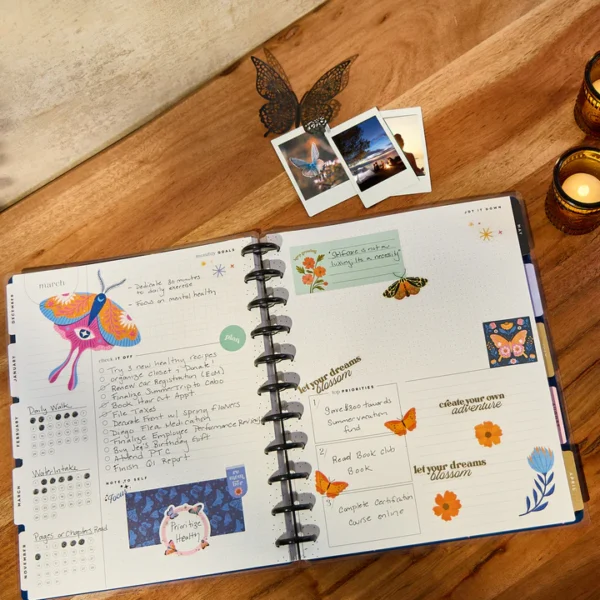 monthly GOALS
march
- Dedicate 30 minutes
to daily exercise
- Focus on mental health
plan
CHECK IT OFF
Try 3 new healthy recipes
organize closet & "Donate"
Renew Car Registration
Finalize Summer Trip to Cabo
Book Hair Cut Appt
File Taxes
Decorate Front w/ spring flowers
Diego Flea Medication
Finalize Employee Performance Review
Buy Jen's Birthday Gift
Attend P.T.C.
Finish Q1 Report
Daily Walk
Water Intake
Pages or Chapters Read
NOTE TO SELF
Prioritize
Health
DECEMBER
JANUARY
FEBRUARY
MARCH
NOVEMBER
JOT IT DOWN
"Self-care is not a
luxury, it's a necessity"
let your dreams
blossom
TOP PRIORITIES
1
Save $800 towards
summer vacation
fund
2
Read Book club
Book
3
Complete Certification
Course online
create your own
adventure
let your dreams
blossom